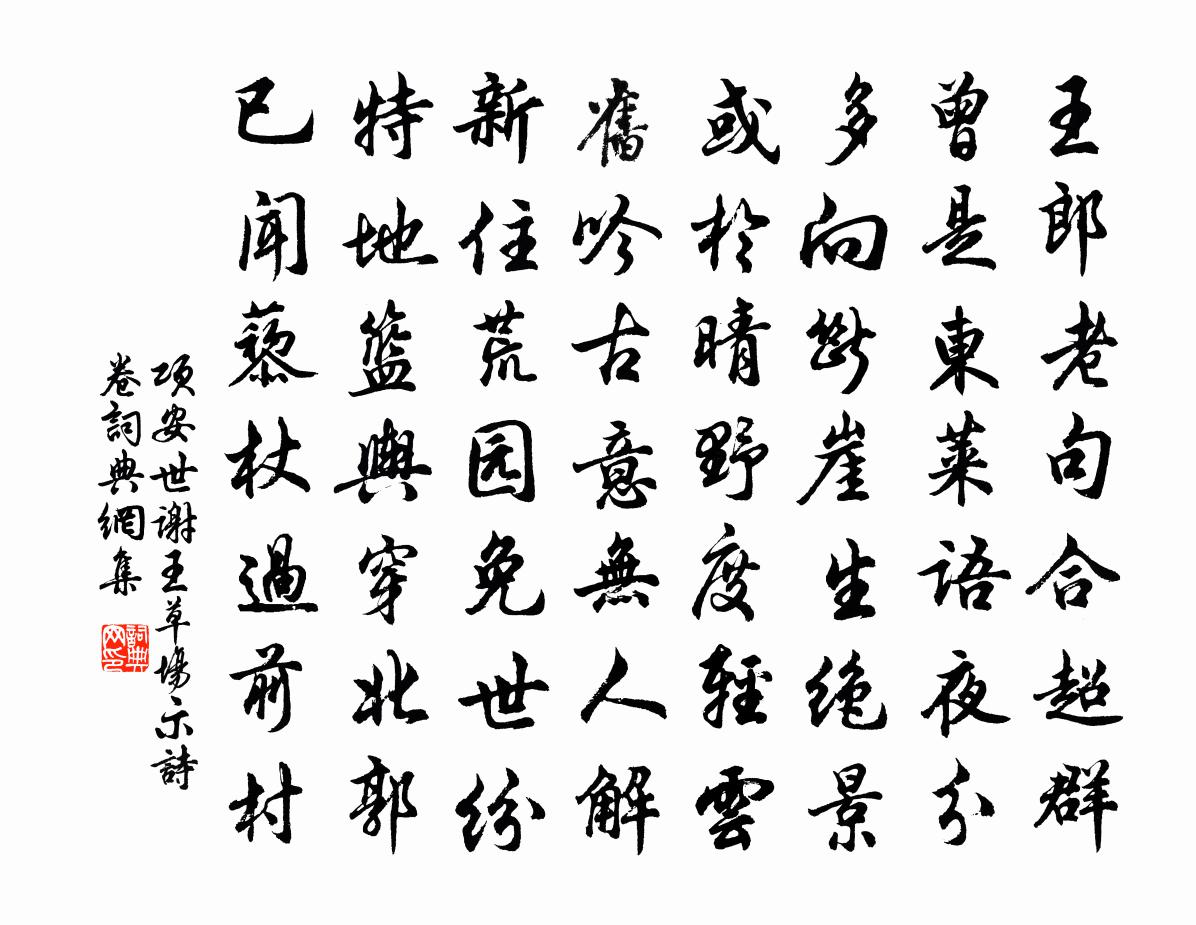 王郎老句合超群
曾是東萊語夜分
多向斷崖生絶景
或於晴野度輕雲
舊吟古意無人解
新住荒园免世紛
特地籃輿穿北郭
已聞藜杖過前村
項安世谢王草場示詩
卷詞典網集
詞典网印